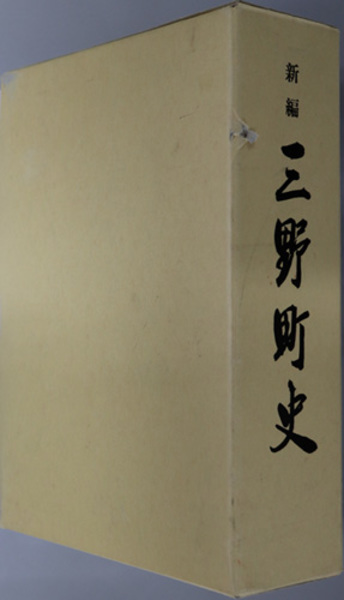 新編
三野町史